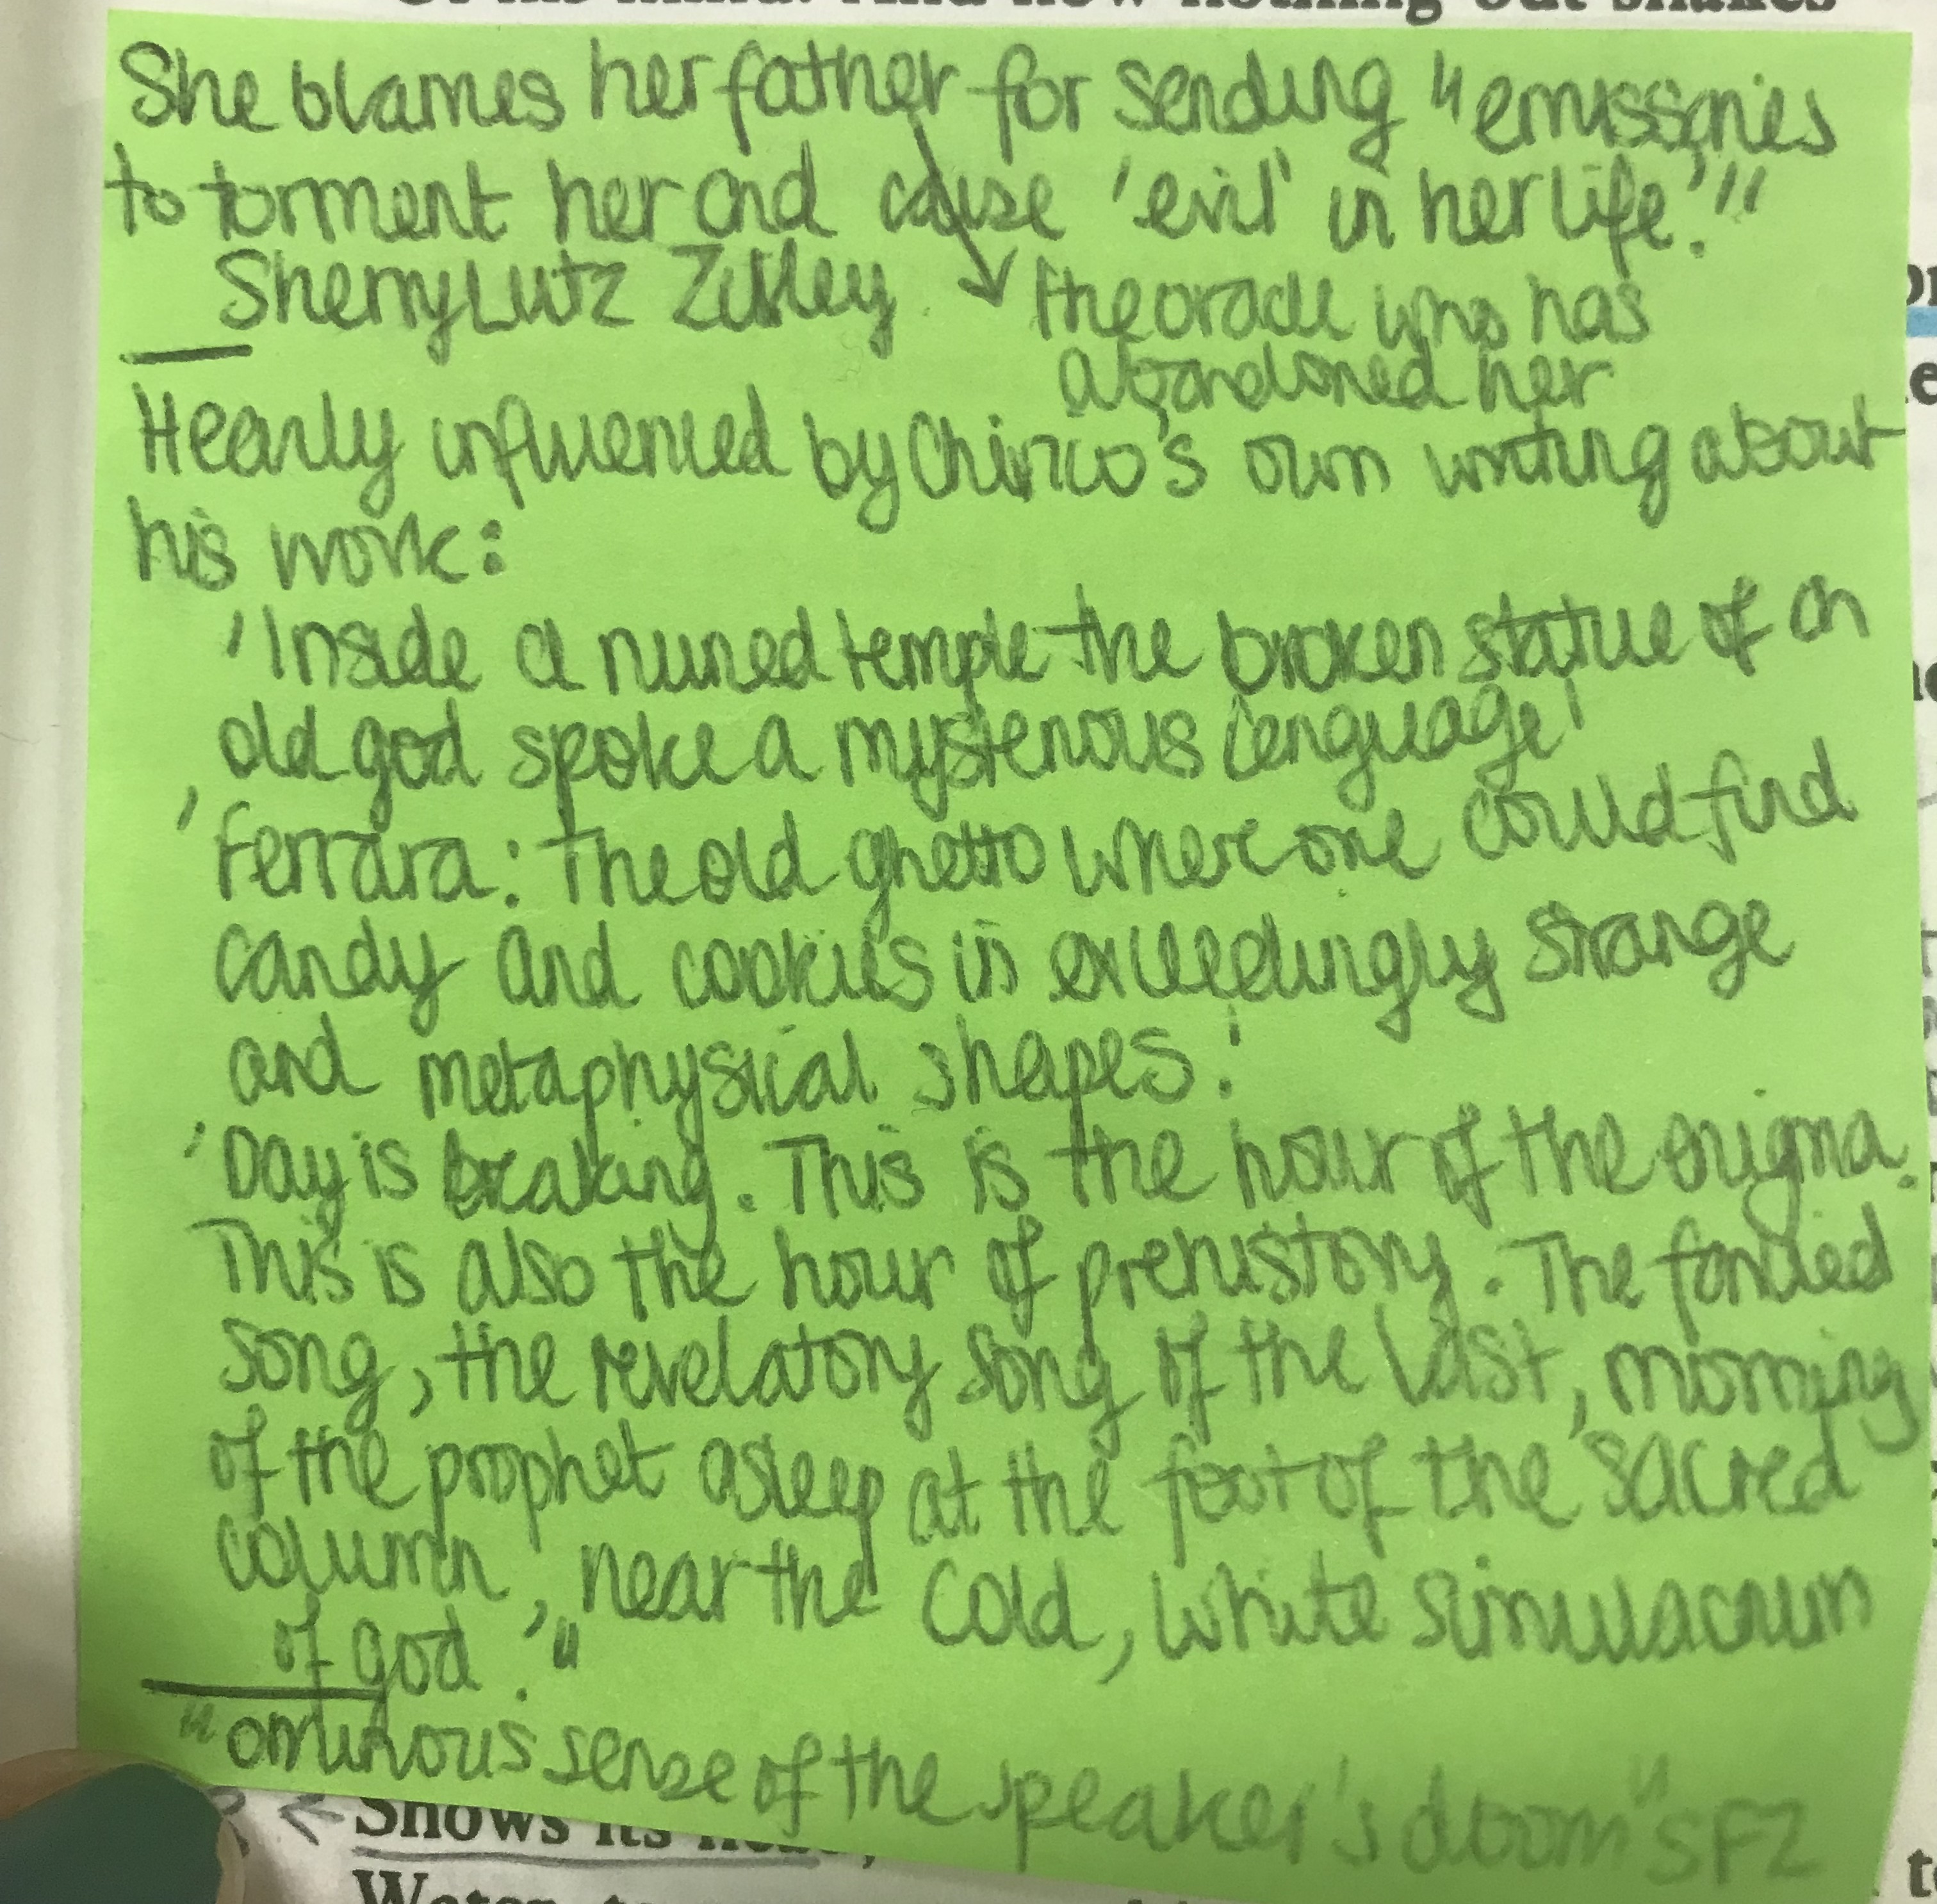 She blames her father for sending "emissaries
to torment her and cause 'evil' in her life.'"
Sherry Lutz Zivley
the oracle who has
abandoned her
Heavily influenced by Chirico's own writing about
his work:
'Inside a ruined temple the broken statue of an
old god spoke a mysterious language'
'Ferrara: The old ghetto where one could find
candy and cookies in exceedingly strange
and metaphysical shapes.'
'Day is breaking. This is the hour of the enigma.
This is also the hour of prehistory. The fancied
song, the revelatory song of the last, morning
of the prophet asleep at the foot of the sacred
column, near the cold, white simulacrum
of god.'"
"ominous sense of the speaker's doom"
Shows its